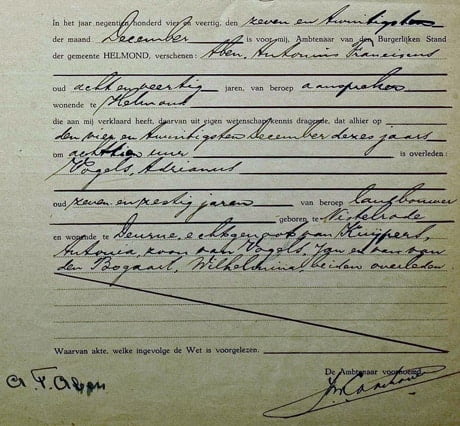 In het jaar negentien honderd vier en veertig, den zeven en twintigsten
der maand December is voor mij, Ambtenaar van den Burgerlijken Stand
der gemeente HELMOND, verschenen: Aben, Antonius Franciscus
oud acht en veertig jaren, van beroep aanspreker
wonende te Helmond
die aan mij verklaard heeft, daarvan uit eigen wetenschap kennis dragende, dat alhier op
den vier en twintigsten December dezes jaars
om achttien uur is overleden:
Vogels, Adrianus
oud zeven en zestig jaren van beroep landbouwer
geboren te Nistelrode
en wonende te Deurne, echtgenoot van Kuijpers,
Antonia, zoon van Vogels, Jan en van van
den Bogaart, Wilhelmina, beiden overleden.
Waarvan akte, welke ingevolge de Wet is voorgelezen.
De Ambtenaar voornoemd,
A. F. Aben